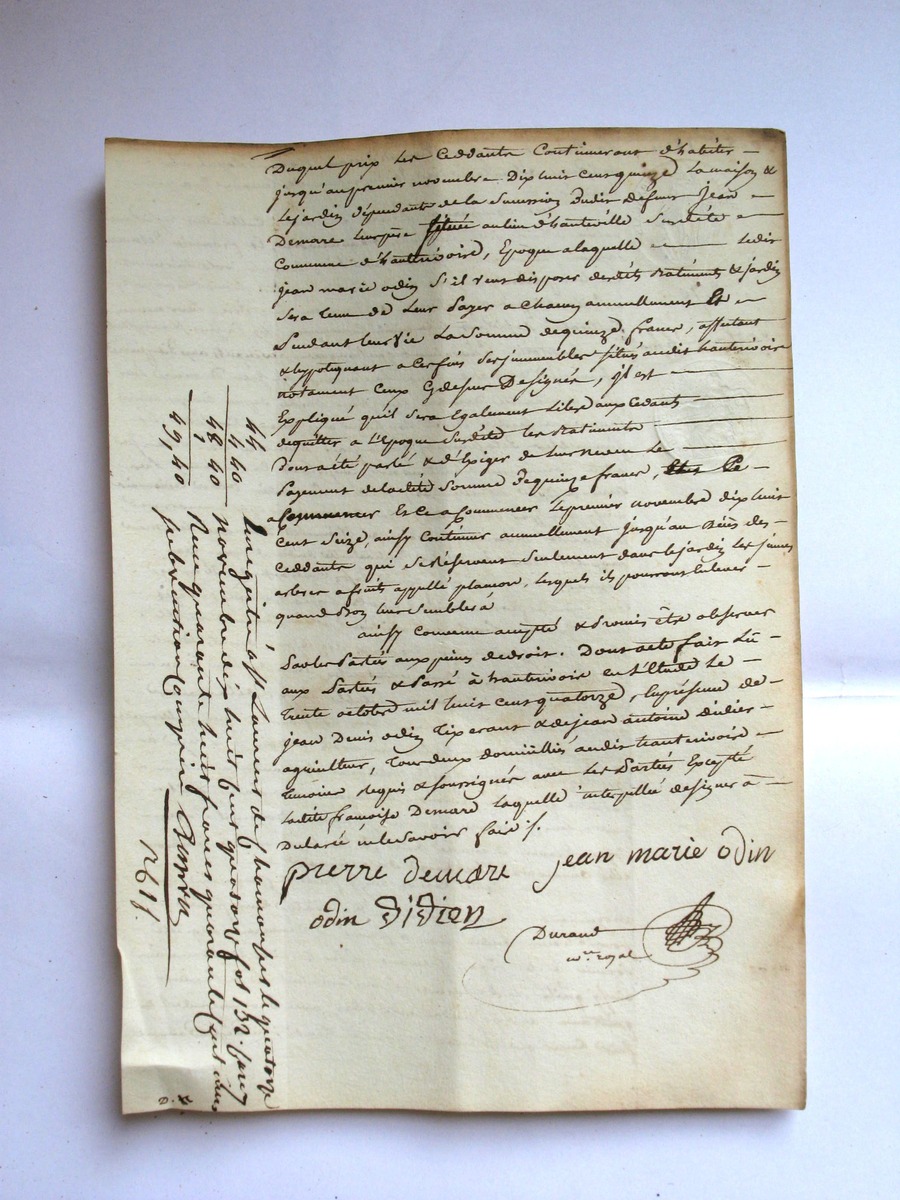 Duquel prix les Ceddants Continueront d'habiter
jusqu'au premier novembre Dix huit cent quinze La maison &
Le jardin dépendants de la Succession dudit défunt Jean
Demare leur père située au lieu d'hauteville Susdite
Commune d'hauterivoire, Epoque a laquelle Ledit
jean marie odin S'il veut disposer desdits Batiments & jardin
Sera tenu de Leur Payer a Chacun annuellement Et
Pendant leur Vie La Somme de quinze francs, affectant
& hypotequant a ces fins Ses immeubles situés audit hauterivoire
notament Ceux Cydessus Designés, il est
Expliqué qu'il sera Egalement Libre aux Cedants
dequitter a l'Epoque Susdite les Batiments
Dont a été parlé & d'Exiger de leur neveu Le
Payement de ladite Somme De quinze francs,
a Commencer Et ce a Commencer Le premier novembre dix huit
Cent Seize, ainsy Continuer annuellement jusqu'au Décès des
Ceddants qui se Réservent Seulement dans le jardin les jeunes
arbres a fruits appellé plamon, lesquels ils pourront Enlever
quand Bon leur Semblera
ainsy Convenu accepté & Promis être observer
Par les Partis aux peines de droit. Dont acte fait Lû
aux Partis & Passé à hauterivoire en L'Etude Le
Trente octobre mil huit Cent quatorze, En présence de
jean Denis odin Tixerant & de jean antoine Didier
agriculteur, Tous deux domiciliés audit hauterivoire
Temoins Requis & Soussignés avec les Partis Excepté
Ladite françoise Demare Laquelle interpellée de signer à
Déclaré ne le Savoir faire /.
pierre demare jean marie odin
odin Didier
Durand
nre royal
44
4 40
48 40
1
49, 40
Enregistré à St Laurent de Chamousset le quatorze
novembre dix huit cent quatorze fol 132. Case 7
Reçu quarante huit francs quarante cent
subvention Comprise